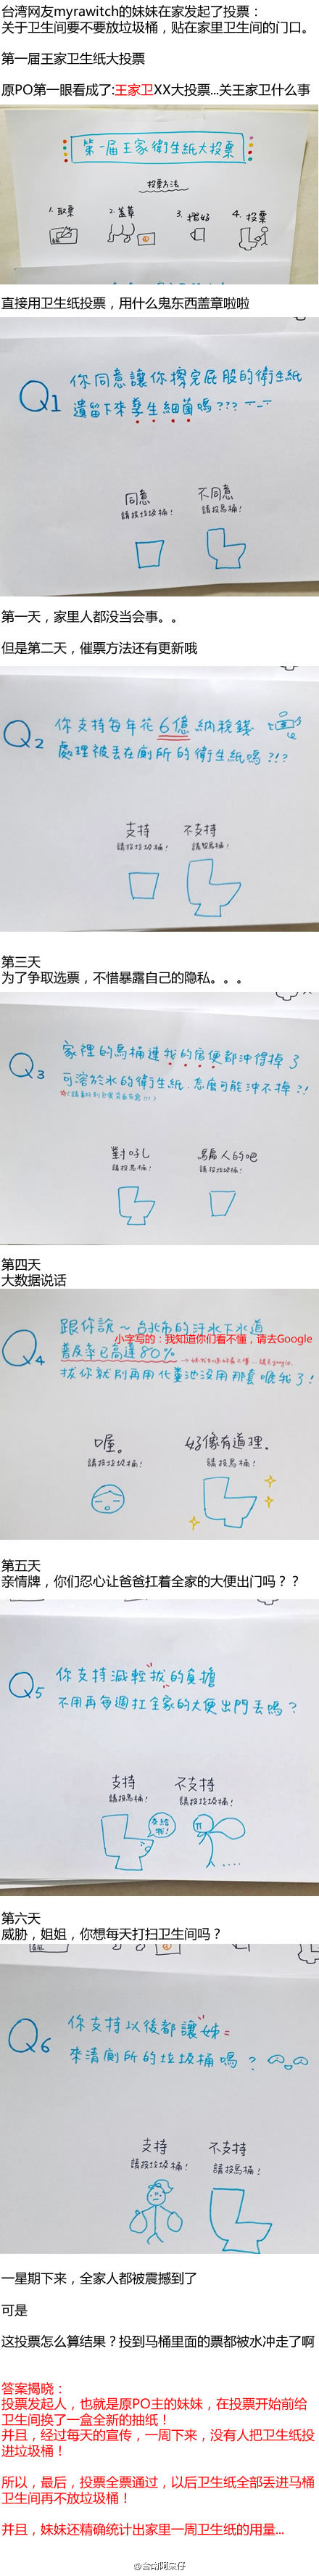 台湾网友myrawitch的妹妹在家发起了投票：
关于卫生间要不要放垃圾桶，贴在家里卫生间的门口。
第一届王家卫生纸大投票
原PO第一眼看成了:王家卫XX大投票...关王家卫什么事
第一届王家衛生紙大投票
投票方法
1. 取票
2. 蓋章
3. 摺好
4. 投票
直接用卫生纸投票，用什么鬼东西盖章啦啦
Q1
你同意讓你擦完屁股的衛生紙
遺留下來孳生細菌嗎???
同意
請投垃圾桶!
不同意
請投馬桶!
第一天，家里人都没当会事。。
但是第二天，催票方法还有更新哦
Q2
你支持每年花6億納稅錢
處理被丟在廁所的衛生紙嗎?!?
支持
請投垃圾桶!
不支持
請投馬桶!
第三天
为了争取选票，不惜暴露自己的隐私。。。
Q3
家裡的馬桶連我的宿便都沖得掉了
可溶於水的衛生紙.怎麼可能沖不掉?!
對吼
請投馬桶!
騙人的吧
請投垃圾桶!
第四天
大数据说话
Q4
跟你說~台北市的汙水下水道
小字写的：我知道你们看不懂，请去Google
普及率已高達80%
拔你就別再用化糞池沒用那套唬我了!
喔。
請投垃圾桶!
好像有道理。
請投馬桶!
第五天
亲情牌，你们忍心让爸爸扛着全家的大便出门吗？？
Q5
你支持減輕拔的負擔
不用再每週扛全家的大便出門丟嗎?
支持
請投馬桶!
交給我!
不支持
請投垃圾桶!
第六天
威胁，姐姐，你想每天打扫卫生间吗？
Q6
你支持以後都讓姊
來清廁所的垃圾桶嗎?
支持
請投垃圾桶!
不支持
請投馬桶!
一星期下来，全家人都被震撼到了
可是
这投票怎么算结果？投到马桶里面的票都被水冲走了啊
答案揭晓：
投票发起人，也就是原PO主的妹妹，在投票开始前给
卫生间换了一盒全新的抽纸！
并且，经过每天的宣传，一周下来，没有人把卫生纸投
进垃圾桶！
所以，最后，投票全票通过，以后卫生纸全部丢进马桶
卫生间再不放垃圾桶！
并且，妹妹还精确统计出家里一周卫生纸的用量...
@台湾阿呆仔